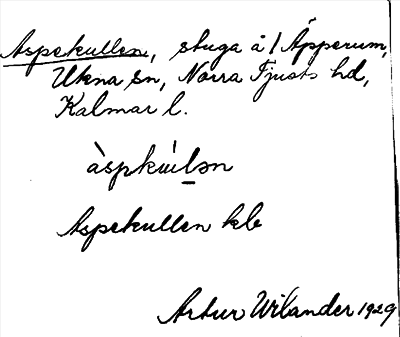 Aspekullen, stuga å 1 Äpperum,
Ukna sn, Norra Tjusts hd,
Kalmar l.
àspkúlən
Aspekullen kb
Artur Wilander 1929